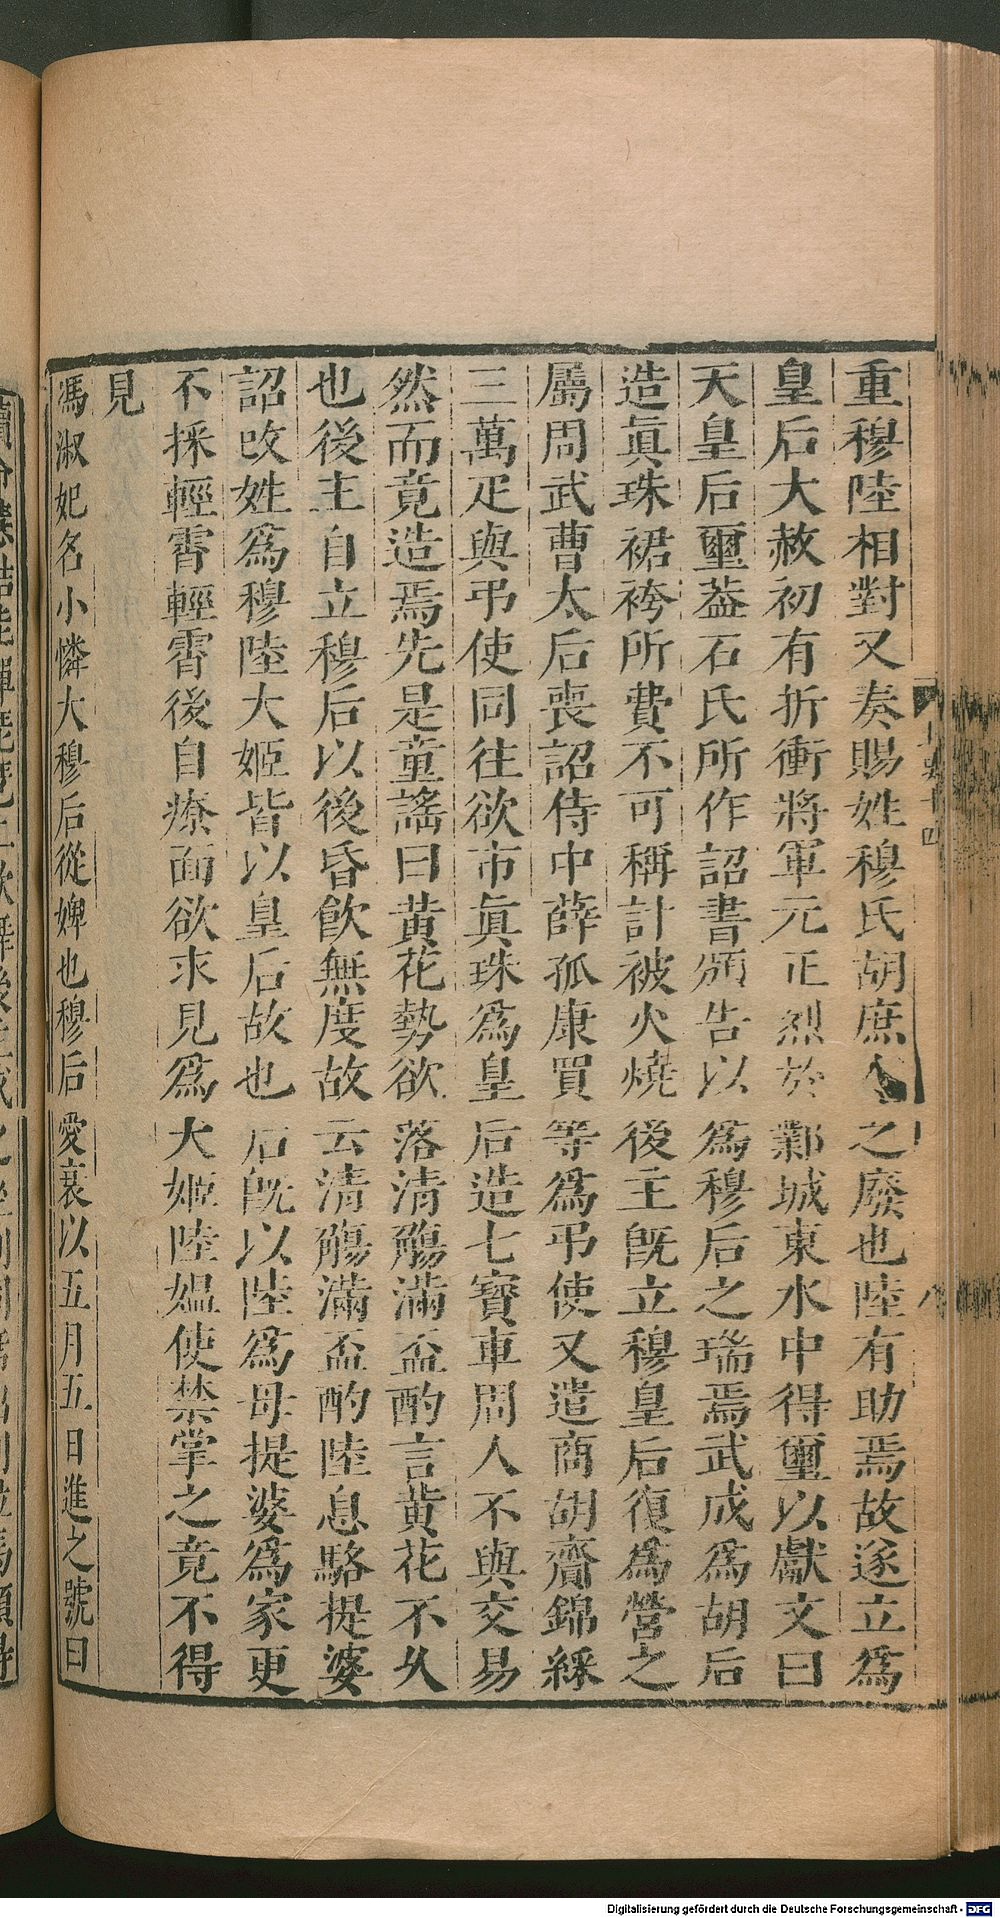 重穆陸相對又奏賜姓穆氏胡庶人之廢也陸有助焉故遂立爲
皇后大赦初有折衝將軍元正烈於鄴城東水中得璽以獻文曰
天皇后璽葢石氏所作詔書頒告以爲穆后之瑞焉武成爲胡后
造眞珠裙袴所費不可稱計被火燒後主旣立穆皇后復爲營之
屬周武曹太后喪詔侍中薛孤康買等爲弔使又遣商胡齎錦綵
三萬疋與弔使同往欲市眞珠爲皇后造七寶車周人不與交易
然而竟造焉先是童謠曰黃花勢欲落清觴滿盃酌言黃花不久
也後主自立穆后以後昏飮無度故云清觴滿盃酌陸息駱提婆
詔改姓爲穆陸大姬皆以皇后故也后旣以陸爲母提婆爲家更
不採輕霄輕霄後自療面欲求見爲大姬陸媼使禁掌之竟不得
見
馮淑妃名小憐大穆后從婢也穆后愛衰以五月五日進之號曰
八
Digitalisierung gefördert durch die Deutsche Forschungsgemeinschaft - DFG